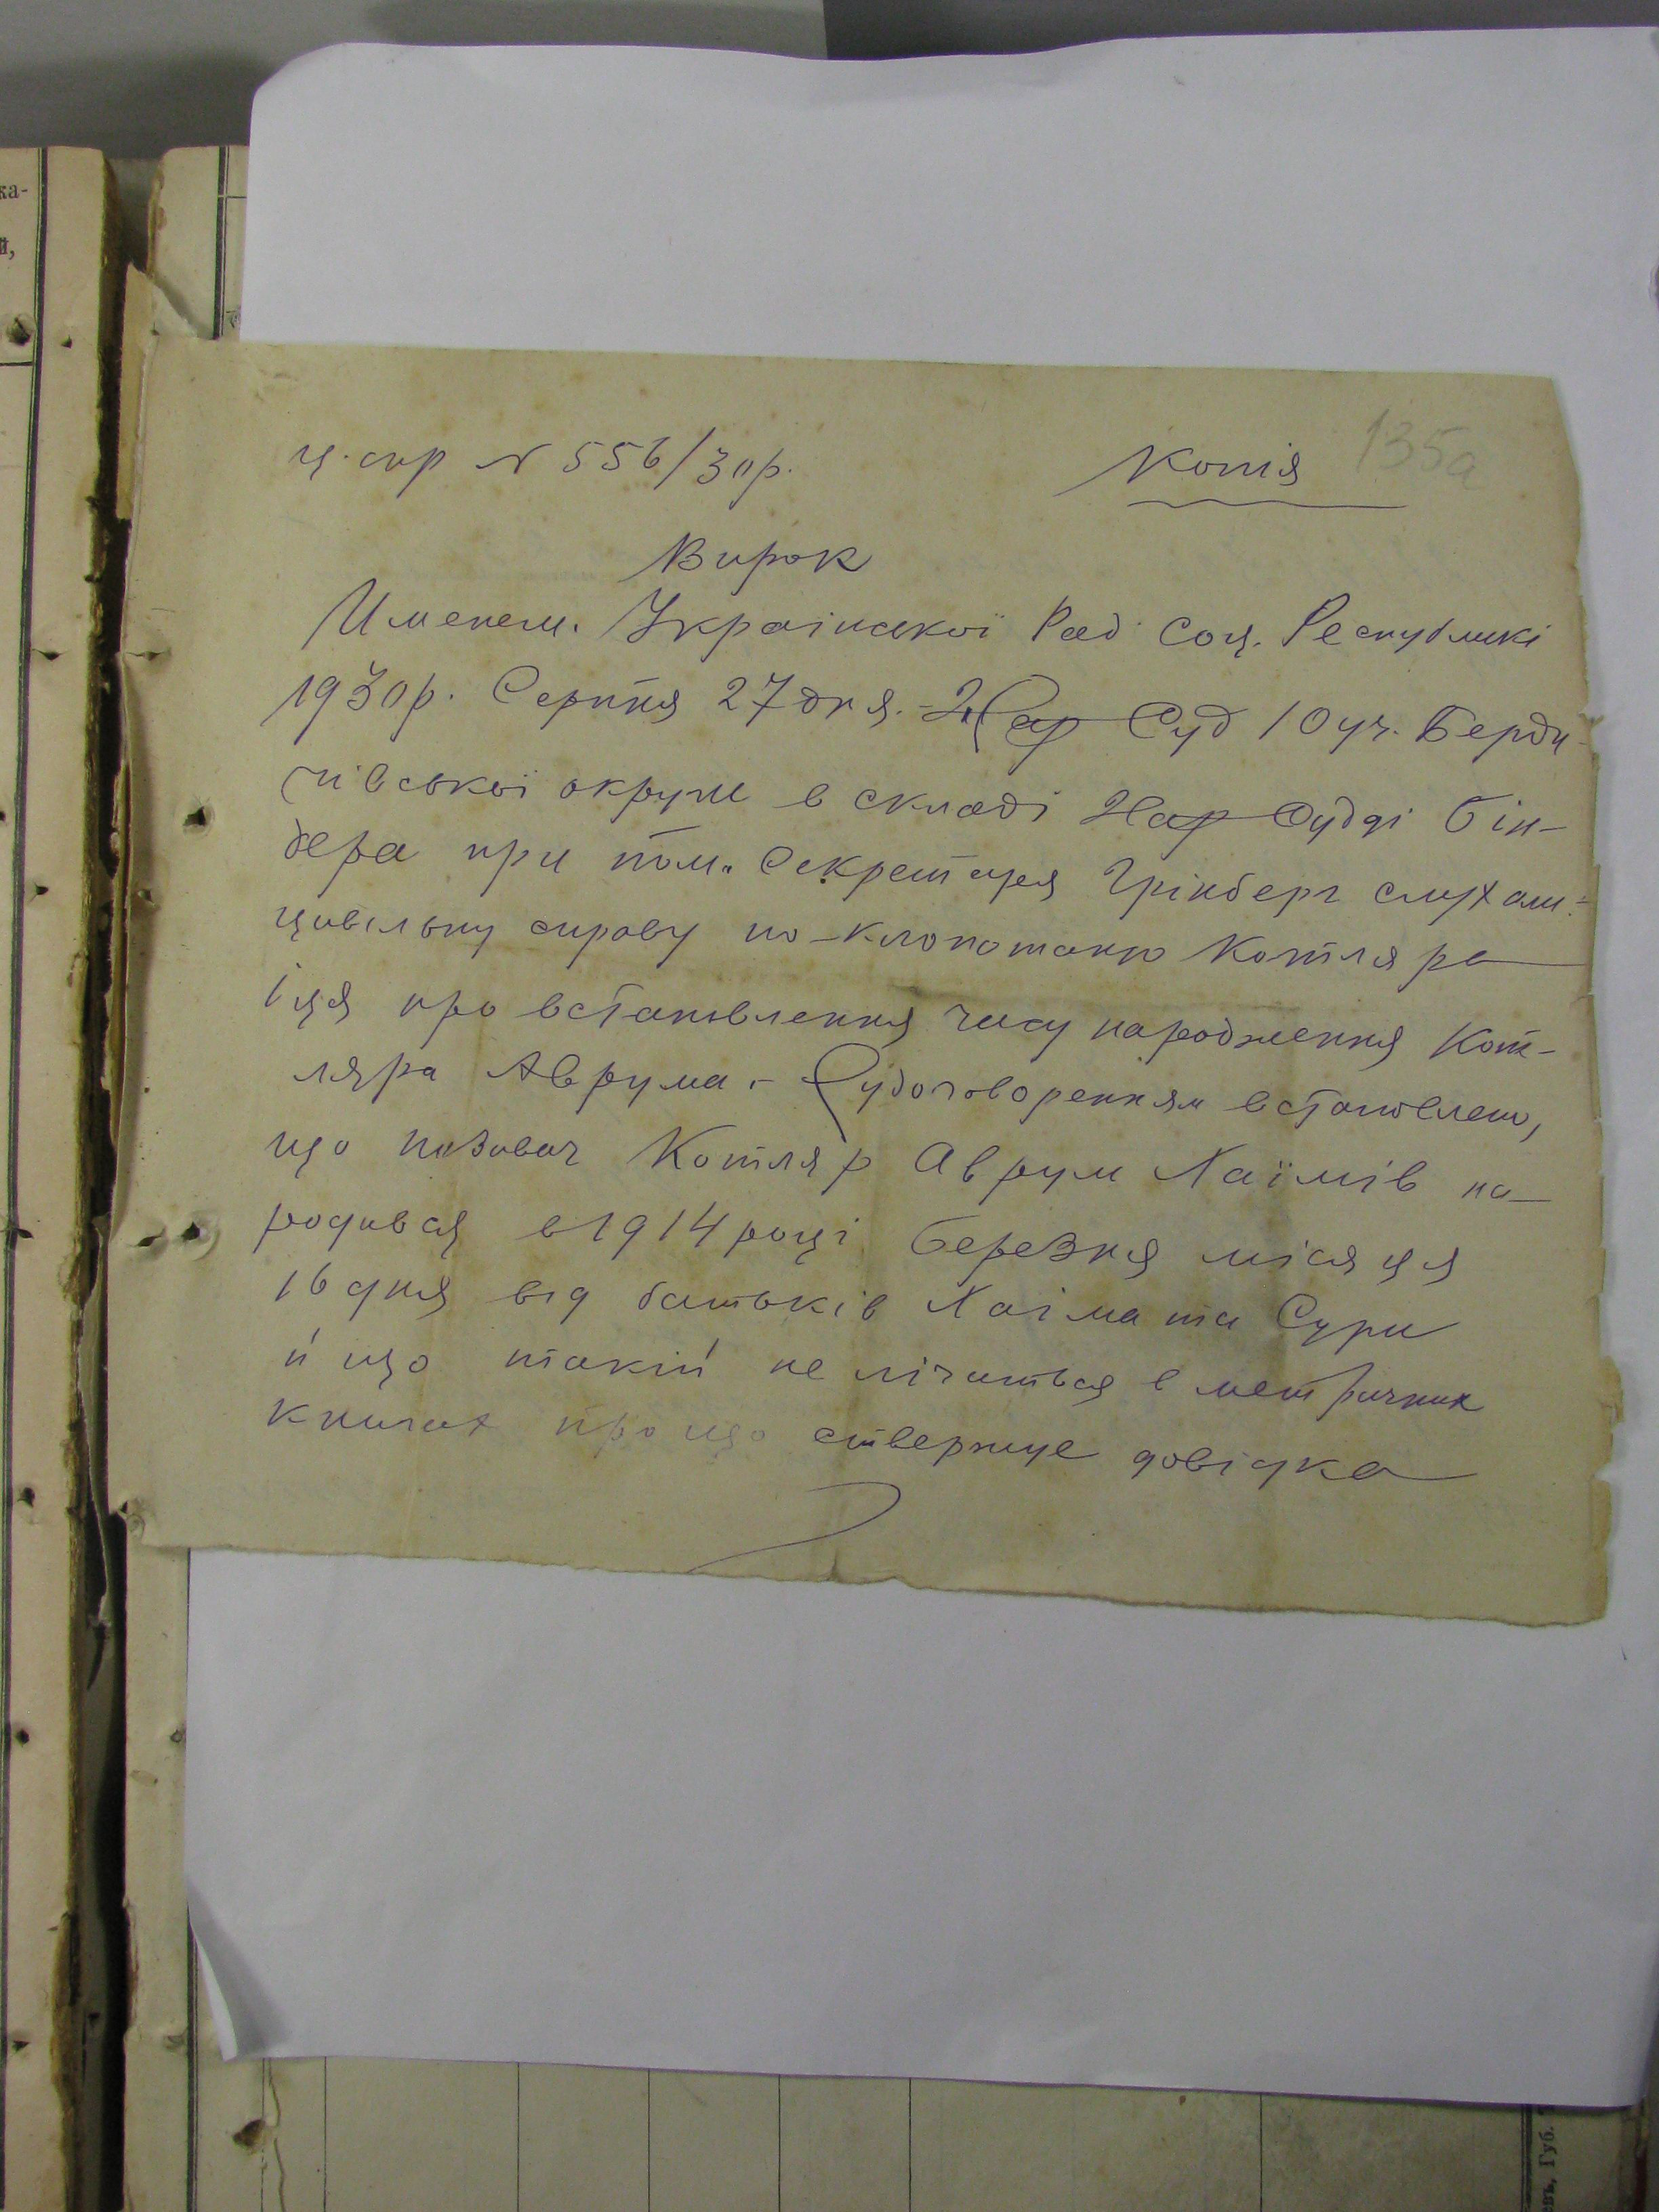 ка-
й,
135а
ц. спр № 556/30р. Копія
Вирок
Именем. Українскої Рад Соц. Республикі
1930р. Серпня 27 дня. - Нар Суд 10 уч. Берди-
чівської округи в складі Нар Судді Бін-
дера при пом. Секретаря Грінберг слухали:
цивільну справу по клопотаню Котляра
Іця про встановлення часу народження Кот-
ляра Аврума. - Судоговоренням встановлено,
що позовач Котляр Аврум Хаїмів на-
родився в 1914 році березня місяця
16 дня від батьків Хаіма та Сури
й що такій не лічиться в метричних
книгах про що ствержує довідка
Губ.